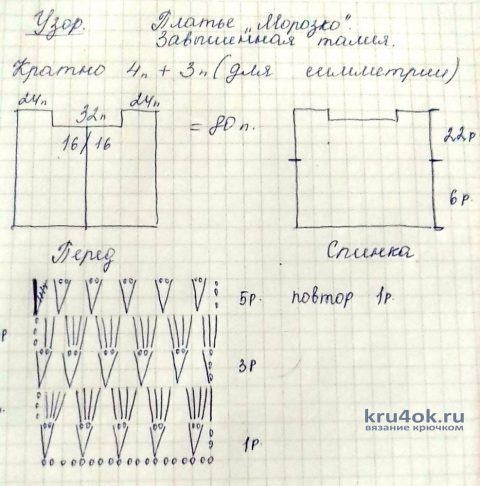 Узор. Платье „Морозко".
Завышенная талия.
Кратно 4п + 3п (для симметрии)
24п 32п 24п
16 / 16 = 80 п.
22р
6р.
Перед Спинка
5р. повтор 1р.
р
3р
1р.
kru4ok.ru
вязание крючком